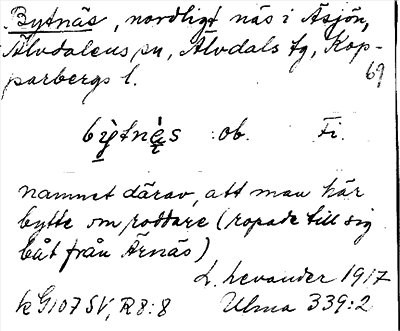 Bytnäs, nordligt näs i Äsjön,
Älvdalens sn, Älvdals tg, Kop-
parbergs l. 69
bỳ̱tnę̀s ob. Fi.
namnet därav, att man här
bytte om roddare (ropade till sig
båt från Ärnäs)
L. Levander 1917
k G107 SV, R8:8 Ulma 339:2